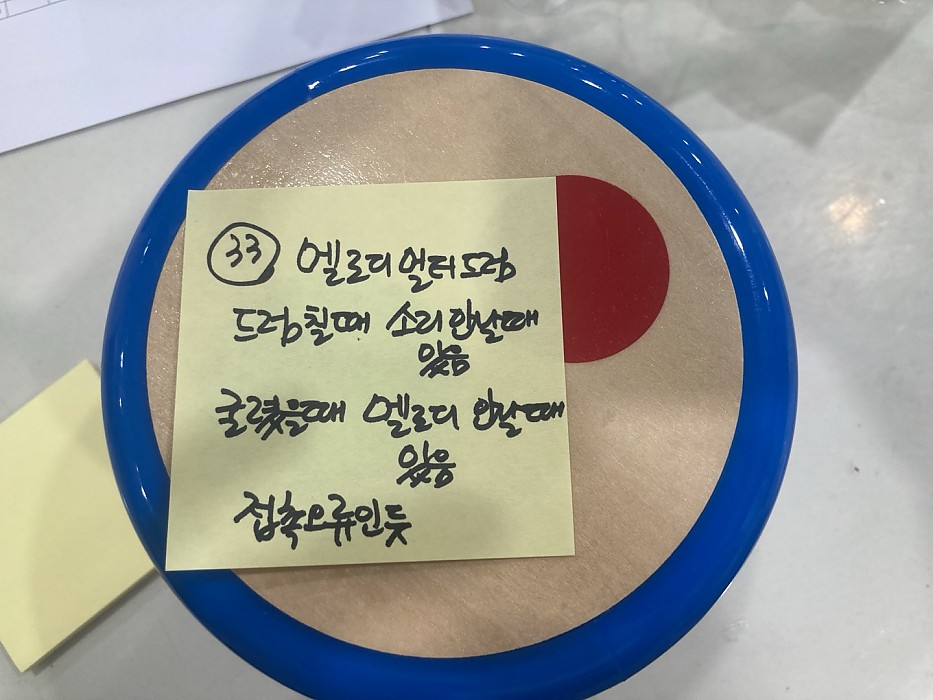 33 멜로디 얼터드럼
드럼칠때 소리 안날때
있음
굴렸을때 멜로디 안날때
있음
접촉오류인듯